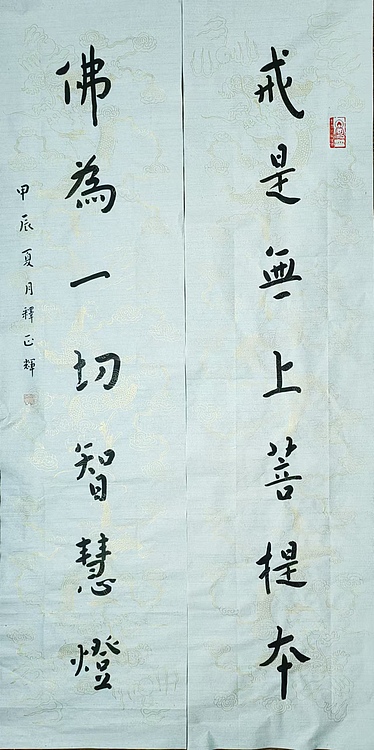 戒是無上菩提本
佛為一切智慧燈
甲辰夏月釋正輝